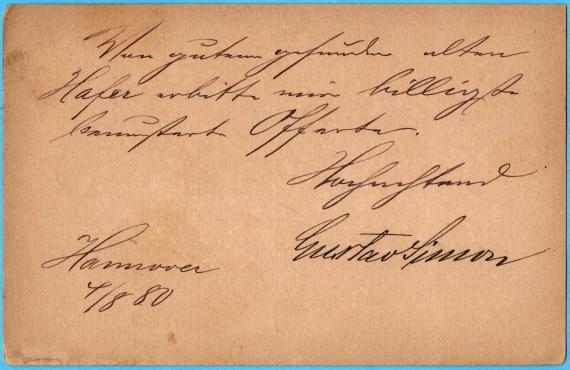 Von gutem gesunden alten
Hafer erbitte mir billigste
bemusterte Offerte.
Hochachtend
Gustav Simon
Hannover
4/8 80